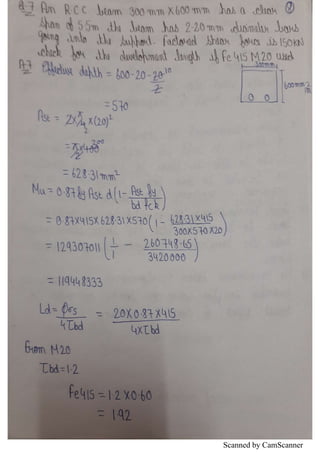 Q.7 An R C C beam 300 mm X 600 mm has a clear
span of 5.5m the beam has 2-20 mm diameter bars
going into the support. Factored shear force is 150KN
check for the development length if Fe 415 M 20 used
A.7 Effective depth = 600-20-20/2 10
300mm
600mm
= 570
Ast = 2x π/4 x(20)²
= π/2 x 400 200
= 628.31mm²
Mu = 0.87 fy Ast d (1 - Ast fy / bd fck)
= 0.87X415X628.31X570 (1 - 628.31X415 / 300X570X20)
= 129307011 (1/1 - 260748.65 / 3420000)
= 119448333
Ld = Ø σs / 4 τbd = 20X0.87X415 / 4X τbd
from M20
τbd = 1.2
Fe415 = 1.2 X 0.60
= 1.92
Scanned by CamScanner